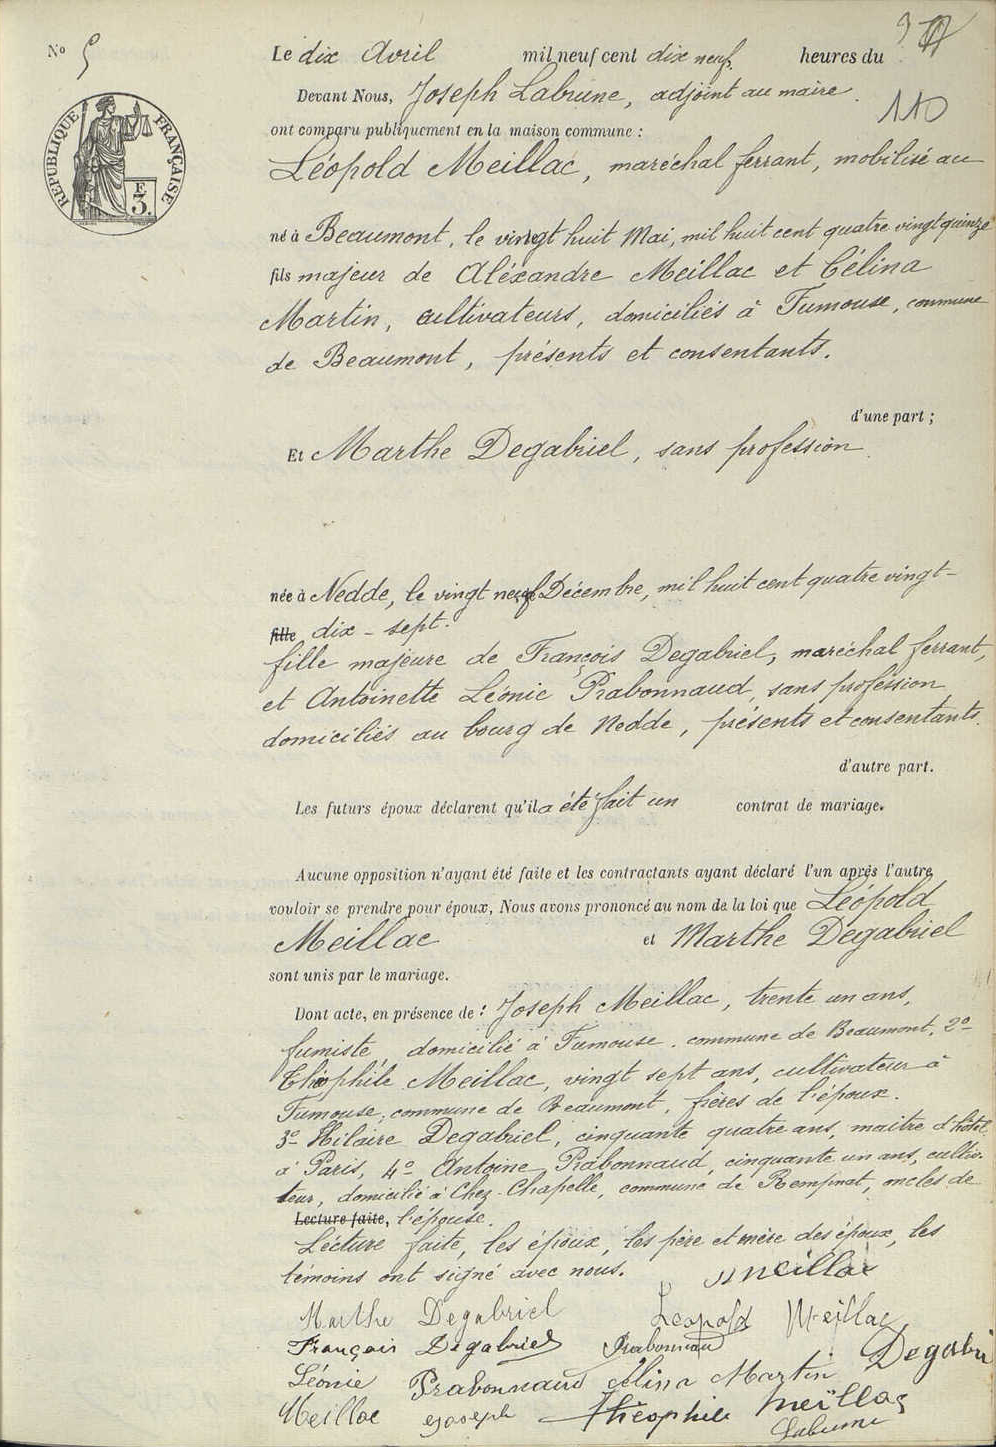 9
110
No 5
RÉPUBLIQUE FRANÇAISE
F.
3.
Le dix Avril mil neuf cent dix neuf heures du
Devant Nous, Joseph Labrune, adjoint au maire.
ont comparu publiquement en la maison commune :
Léopold Meillac, maréchal ferrant, mobilisé au
né à Beaumont, le vingt huit Mai, mil huit cent quatre vingt quinze
fils majeur de Aléxandre Meillac et Célina
Martin, cultivateurs, domiciliés à Fumouse, commune
de Beaumont, présents et consentants.
d'une part ;
Et Marthe Degabriel, sans profession
née à Nedde, le vingt neuf Décembre, mil huit cent quatre vingt-
fille dix - sept.
fille majeure de François Degabriel, maréchal ferrant,
et Antoinette Léonie Prabonnaud, sans profession
domiciliés au bourg de Nedde, présents et consentants.
d'autre part.
Les futurs époux déclarent qu'il a été fait un contrat de mariage.
Aucune opposition n'ayant été faite et les contractants ayant déclaré l'un après l'autre
vouloir se prendre pour époux, Nous avons prononcé au nom de la loi que Léopold
Meillac et Marthe Degabriel
sont unis par le mariage.
Dont acte, en présence de : Joseph Meillac, trente un ans,
fumiste, domicilié à Fumouse, commune de Beaumont, 2o
Théophile Meillac, vingt sept ans, cultivateur à
Fumouse, commune de Beaumont, frères de l'époux.
3o Hilaire Degabriel, cinquante quatre ans, maitre d'hôtel
à Paris, 4o Antoine Prabonnaud, cinquante un ans, cultiva-
teur, domicilié à Chez-Chapelle, commune de Rempnat, oncles de
Lecture faite, l'épouse.
Lecture faite, les époux, les père et mère des époux, les
témoins ont signé avec nous. Meillac
Marthe Degabriel Leopold Meillac
François Degabriel Prabonnaud Degabri
Léonie Prabonnaud Martin
Meillac Joseph Théophile Meillac
Labrune